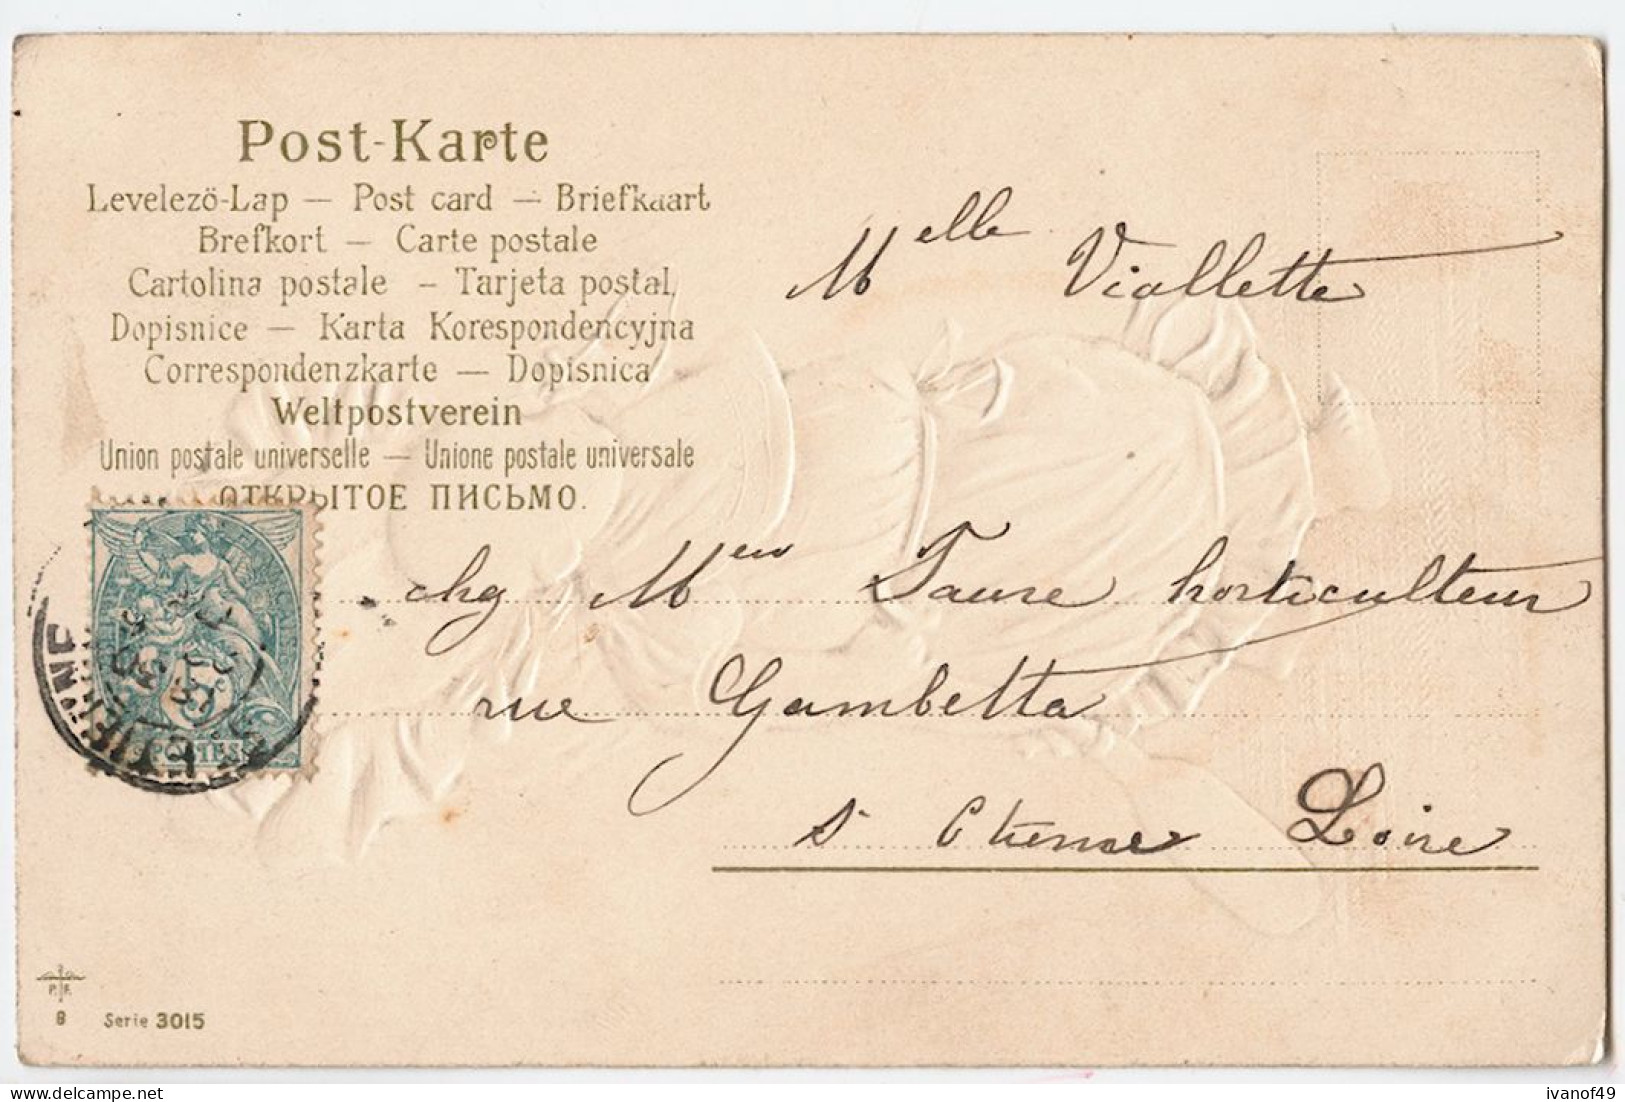 Post-Karte
Levelező-Lap — Post card — Briefkaart
Brefkort — Carte postale
Cartolina postale — Tarjeta postal
Dopisnice — Karta Korespondencyjna
Correspondenzkarte — Dopisnica
Weltpostverein
Union postale universelle — Unione postale universale
ОТКРЫТОЕ ПИСЬМО.
Melle Viallette
chez Mr Faure horticulteur
rue Gambetta
St Etienne Loire
POSTES
ST ETIENNE
P. F.
8 Serie 3015
ivanof49